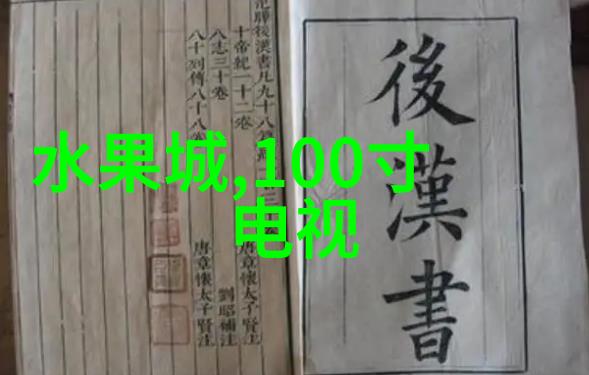 水果城,100寸
电视
後漢書
范曄後漢書凡九十八篇
十帝紀一十二卷
八志三十卷
八十列傳八十八卷
唐章懷太子賢注
劉昭補注
唐章懷太子賢注